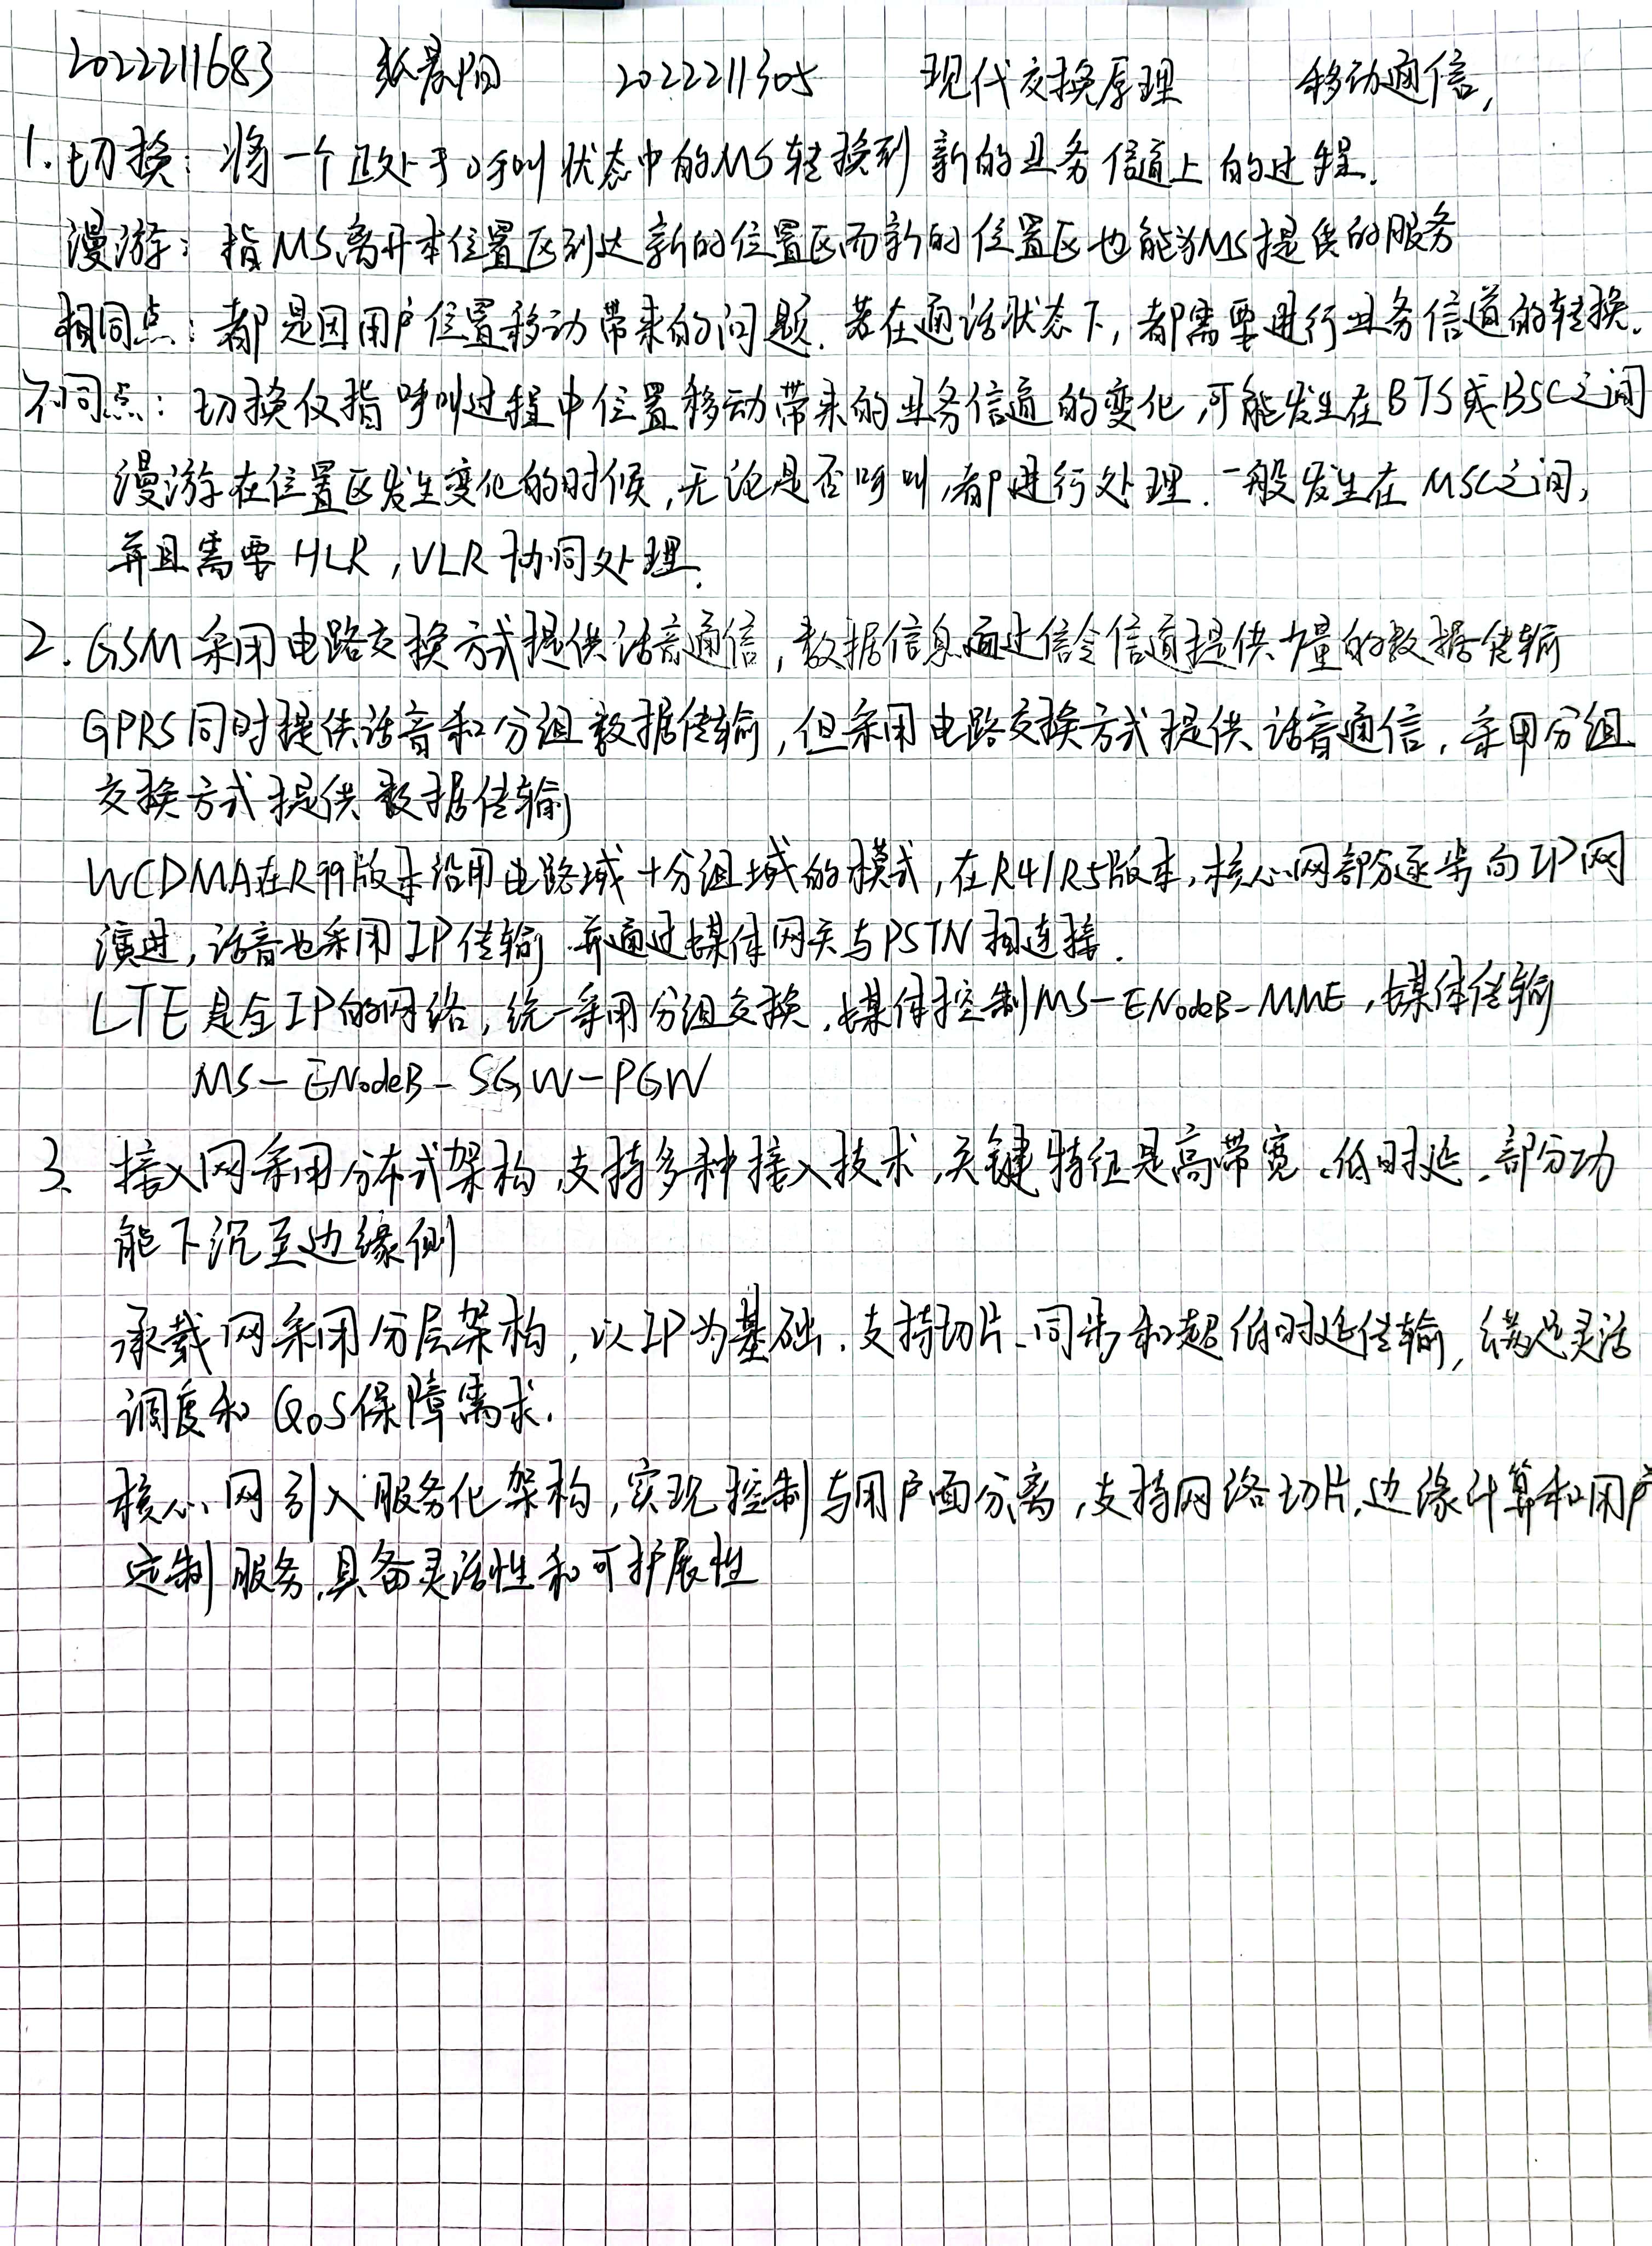 2022211683 张晨阳 2022211305 现代交换原理 移动通信,
1. 切换: 将一个正处于呼叫状态中的MS转换到新的业务信道上的过程.
漫游: 指MS离开本位置区到达新的位置区而新的位置区也能为MS提供的服务
相同点: 都是因用户位置移动带来的问题. 若在通话状态下, 都需要进行业务信道的转换.
不同点: 切换仅指呼叫过程中位置移动带来的业务信道的变化, 可能发生在BTS或BSC之间
漫游在位置区发生变化的时候, 无论是否呼叫, 都进行处理. 一般发生在MSC之间,
并且需要HLR, VLR协同处理.
2. GSM采用电路交换方式提供话音通信, 数据信息通过信令信道提供少量的数据传输
GPRS同时提供话音和分组数据传输, 但采用电路交换方式提供话音通信, 采用分组
交换方式提供数据传输
WCDMA在R99版本沿用电路域+分组域的模式, 在R4/R5版本, 核心网部分逐步向IP网
演进, 话音也采用IP传输 并通过媒体网关与PSTN相连接.
LTE是全IP的网络, 统一采用分组交换, 媒体控制MS-ENodeB-MME, 媒体传输
MS-ENodeB-SGW-PGW
3、接入网采用分布式架构, 支持多种接入技术, 关键特征是高带宽、低时延、部分功
能下沉至边缘侧
承载网采用分层架构, 以IP为基础, 支持切片、同步和超低时延传输, 满足灵活
调度和QoS保障需求.
核心网引入服务化架构, 实现控制与用户面分离, 支持网络切片, 边缘计算和用户
定制服务, 具备灵活性和可扩展性